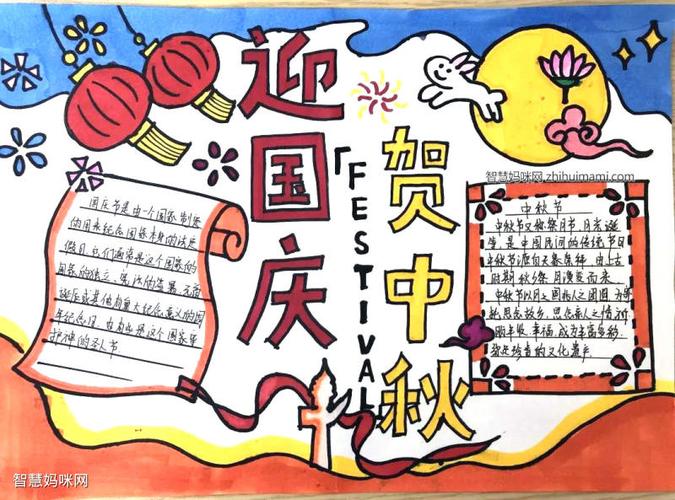 迎国庆
「FESTIVAL
贺中秋
智慧妈咪网.zhihuimami.com
国庆节是由一个国家制定
的用来纪念国家本身的法定
假日,它们通常是这个国家的
国家的独立、宪法的签署、元首
诞辰或其他有重大纪念意义的周
年纪念日,也有些是这个国家守
护神的圣人节
中秋节
中秋节又称祭月节、月光诞
是中国民间的传统节日
中秋节源自天象崇拜,由上古
时期秋夕祭月演变而来.
中秋节以月之圆兆人之团圆,为寄
托思念故乡,思念亲人之情,祈
盼丰收、幸福,成为丰富多彩、
弥足珍贵的文化遗产
智慧妈咪网